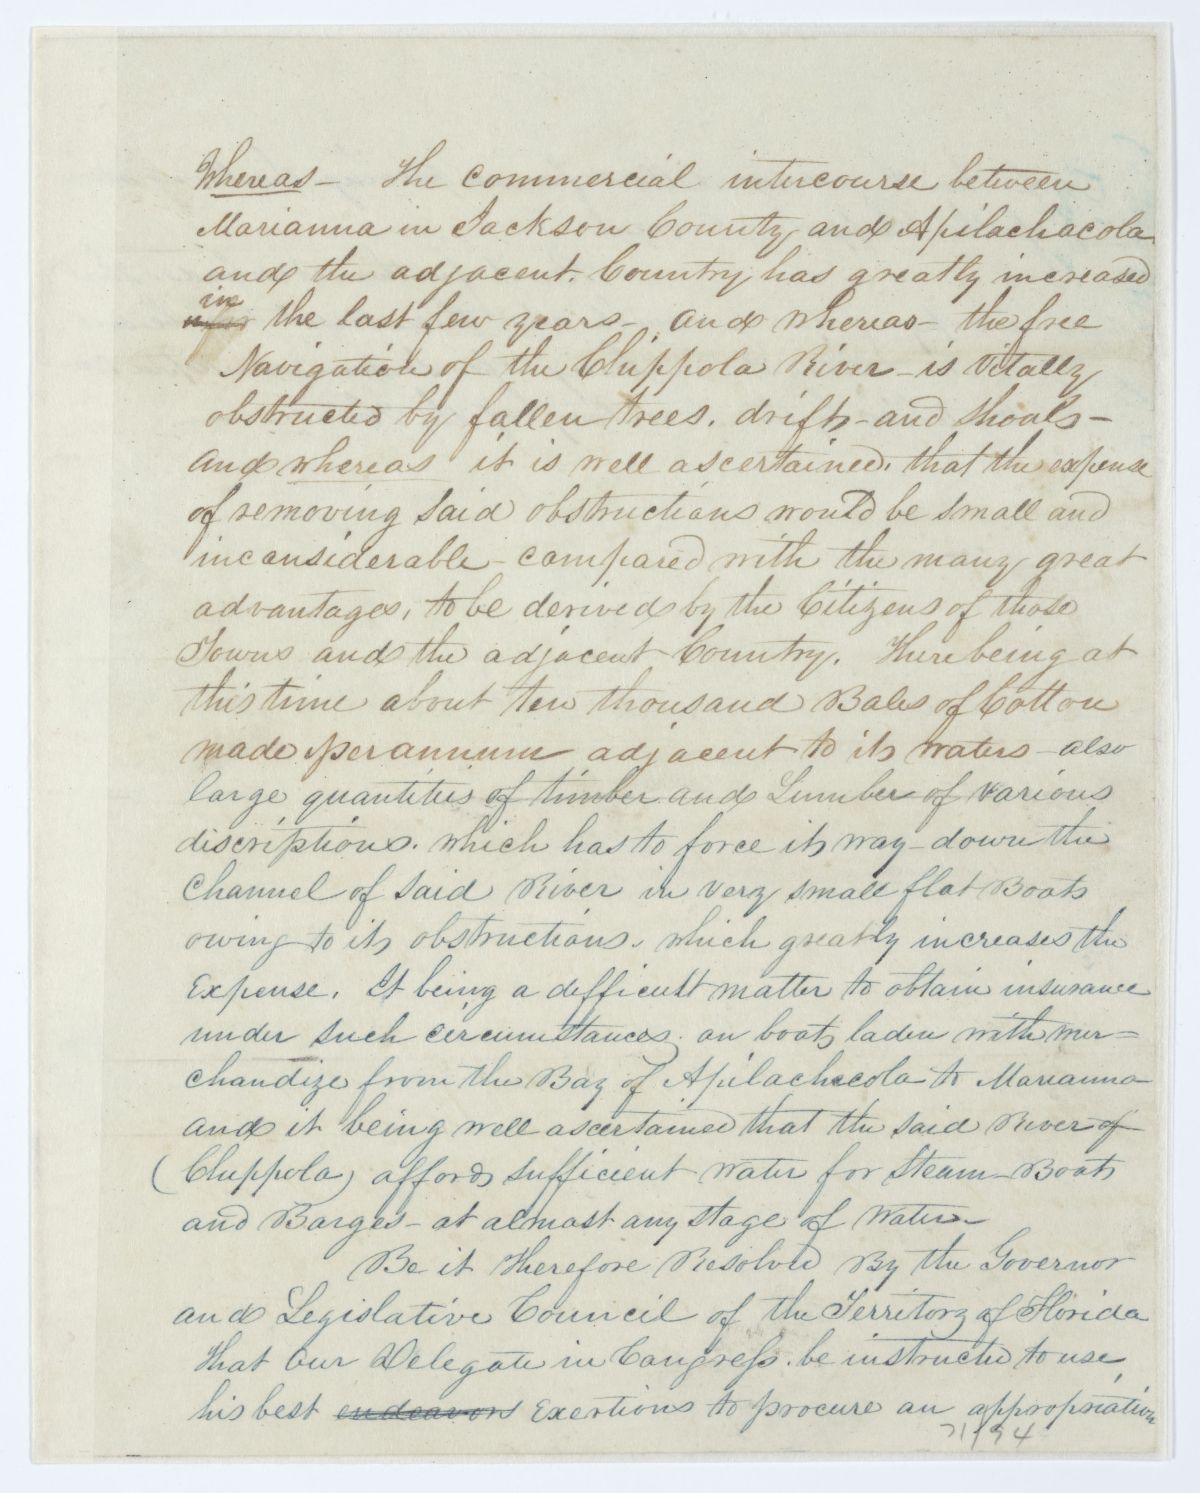 Whereas – The commercial intercourse between
Marianna in Jackson County and Apilachacola
and the adjacent. Country has greatly increased
in
the last few years – and whereas – the free
Navigation of the Chippola River – is vitally
obstructed by fallen trees. drifts – and shoals –
and whereas it is well ascertained, that the expense
of removing said obstructions would be small and
inconsiderable – compared with the many great
advantages, to be derived by the Citizens of those
Towns and the adjacent Country. There being at
this time about ten thousand Bales of Cotton
made per annum adjacent to its waters – also
large quantities of timber and Lumber of various
discriptions. which has to force its way – down the
Channel of said River in very small flat Boats
owing to its obstructions. which greatly increases the
Expense. It being a difficult matter to obtain insurance
under such circumstances, on boats laden with mer=
chandize from the Bay of Apilachecola to Marianna
and it being well ascertained that the said River of
(Chippola) affords sufficient water for Steam – Boats
and Barges – at almost any stage of Water –
Be it Therefore Resolved By the Governor
and Legislative Council of the Territory of Florida
That our Delegate in Congress. be instructed to use
his best endeavors Exertions to procure an appropriation